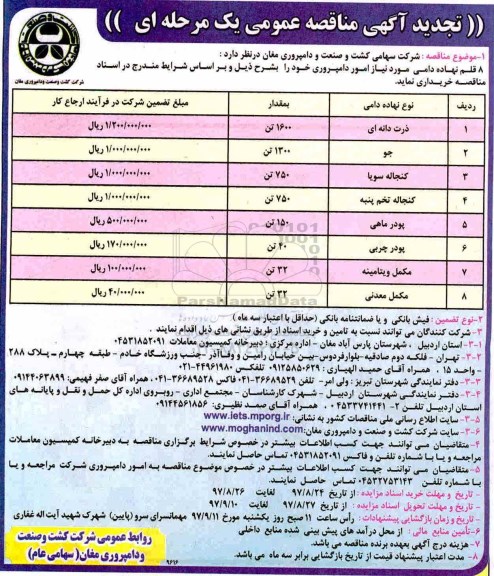 (( تجدید آگهی مناقصه عمومی یک مرحله ای ))
شرکت کشت وصنعت ودامپروری مغان
۱-موضوع مناقصه : شرکت سهامی کشت و صنعت و دامپروری مغان درنظر دارد :
۸ قلم نهاده دامی مورد نیاز امور دامپروری خود را بشرح ذیل و بر اساس شرایط مندرج در اسناد
مناقصه خریداری نماید.
ردیف نوع نهاده دامی بمقدار مبلغ تضمین شرکت در فرآیند ارجاع کار
۱ ذرت دانه ای ۱۶۰۰ تن ۱/۲۰۰/۰۰۰/۰۰۰ ریال
۲ جو ۱۳۰۰ تن ۱/۰۰۰/۰۰۰/۰۰۰ ریال
۳ کنجاله سویا ۷۵۰ تن ۱/۰۰۰/۰۰۰/۰۰۰ ریال
۴ کنجاله تخم پنبه ۷۵۰ تن ۱/۰۰۰/۰۰۰/۰۰۰ ریال
۵ پودر ماهی ۱۵۰ تن ۵۰۰/۰۰۰/۰۰۰ ریال
۶ پودر چربی ۴۰ تن ۱۷۰/۰۰۰/۰۰۰ ریال
۷ مکمل ویتامینه ۳۲ تن ۱۰۰/۰۰۰/۰۰۰ ریال
۸ مکمل معدنی ۳۲ تن ۴۰/۰۰۰/۰۰۰ ریال
ParsNamadData
۲-نوع تضمین : فیش بانکی و یا ضمانتنامه بانکی (حداقل با اعتبار سه ماه )
۳- شرکت کنندگان می توانند نسبت به تامین و خرید اسناد از طریق نشانی های ذیل اقدام نمایند .
۳-۱- استان اردبیل ، شهرستان پارس آباد مغان - اداره مرکزی ؛ دبیرخانه کمیسیون معاملات ۰۴۵۳۱۸۵۲۰۹۱
۳-۲- تهران - فلکه دوم صادقیه -بلوارفردوس-بین خیابان رامین و وفاآذر -جنب ورزشگاه خادم - طبقه چهارم - پلاک ۲۸۸
- واحد ۱۵ ، همراه آقای حمید الهیاری : ۰۹۱۲۵۸۵۰۶۲۹ تلفکس ۴۴۹۶۱۹۸۰-۰۲۱
۳-۳- دفتر نمایندگی شهرستان تبریز : ولی امر- تلفن ۳۶۶۸۹۵۲۹-۰۴۱ فاکس ۳۶۶۸۹۵۲۸-۰۴۱، همراه آقای صفر فهیمی: ۰۹۱۴۴۰۶۳۸۹۹
۳-۴- دفتر نمایندگی شهرستان اردبیل - شهرک کارشناسان - مجتمع اداری - روبروی اداره کل حمل و نقل و پایانه های
استان اردبیل تلفن ۲-۰۴۵۳۳۷۴۱۴۴۱ ، همراه آقای صمد نظیری: ۰۹۱۴۴۵۶۱۸۵۶
۳-۵- سایت اطلاع رسانی ملی مناقصات کشور به نشانی: www.iets.mporg.ir
۳-۶- سایت شرکت کشت و صنعت و دامپروری مغان: www.moghanind.com
۴- متقاضیان می توانند جهت کسب اطلاعات بیشتر در خصوص شرایط برگزاری مناقصه به دبیرخانه کمیسیون معاملات
مراجعه و یا با شماره تلفن و فاکس ۰۴۵۳۱۸۵۲۰۹۱ تماس حاصل نمایند.
۵- متقاضیان می توانند جهت کسب اطلاعات بیشتر در خصوص موضوع مناقصه به امور دامپروری شرکت مراجعه و یا
با شماره تلفن ۰۴۵۳۲۷۵۳۱۴۳ تماس حاصل نمایند.
- تاریخ و مهلت خرید اسناد مزایده : از تاریخ ۹۷/۸/۲۴ لغایت ۹۷/۸/۲۶
- تاریخ و مهلت تحویل اسناد مزایده : از تاریخ ۹۷/۸/۲۷ لغایت ۹۷/۹/۱۰
- تاریخ و زمان بازگشایی پیشنهادات : رأس ساعت ۱۱ صبح روز یکشنبه مورخ ۹۷/۹/۱۱ مهمانسرای سرو (پایین) شهرک شهید آیت اله غفاری
۶-تأمین منابع مالی : از محل درآمد های پیش بینی شده منابع داخلی
۷- هزینه درج آگهی بعهده برنده مناقصه می باشد.
۸- مدت اعتبار پیشنهاد قیمت از تاریخ بازگشایی برابر سه ماه می باشد.
روابط عمومی شرکت کشت وصنعت
ودامپروری مغان(سهامی عام)
۹۶۱۶